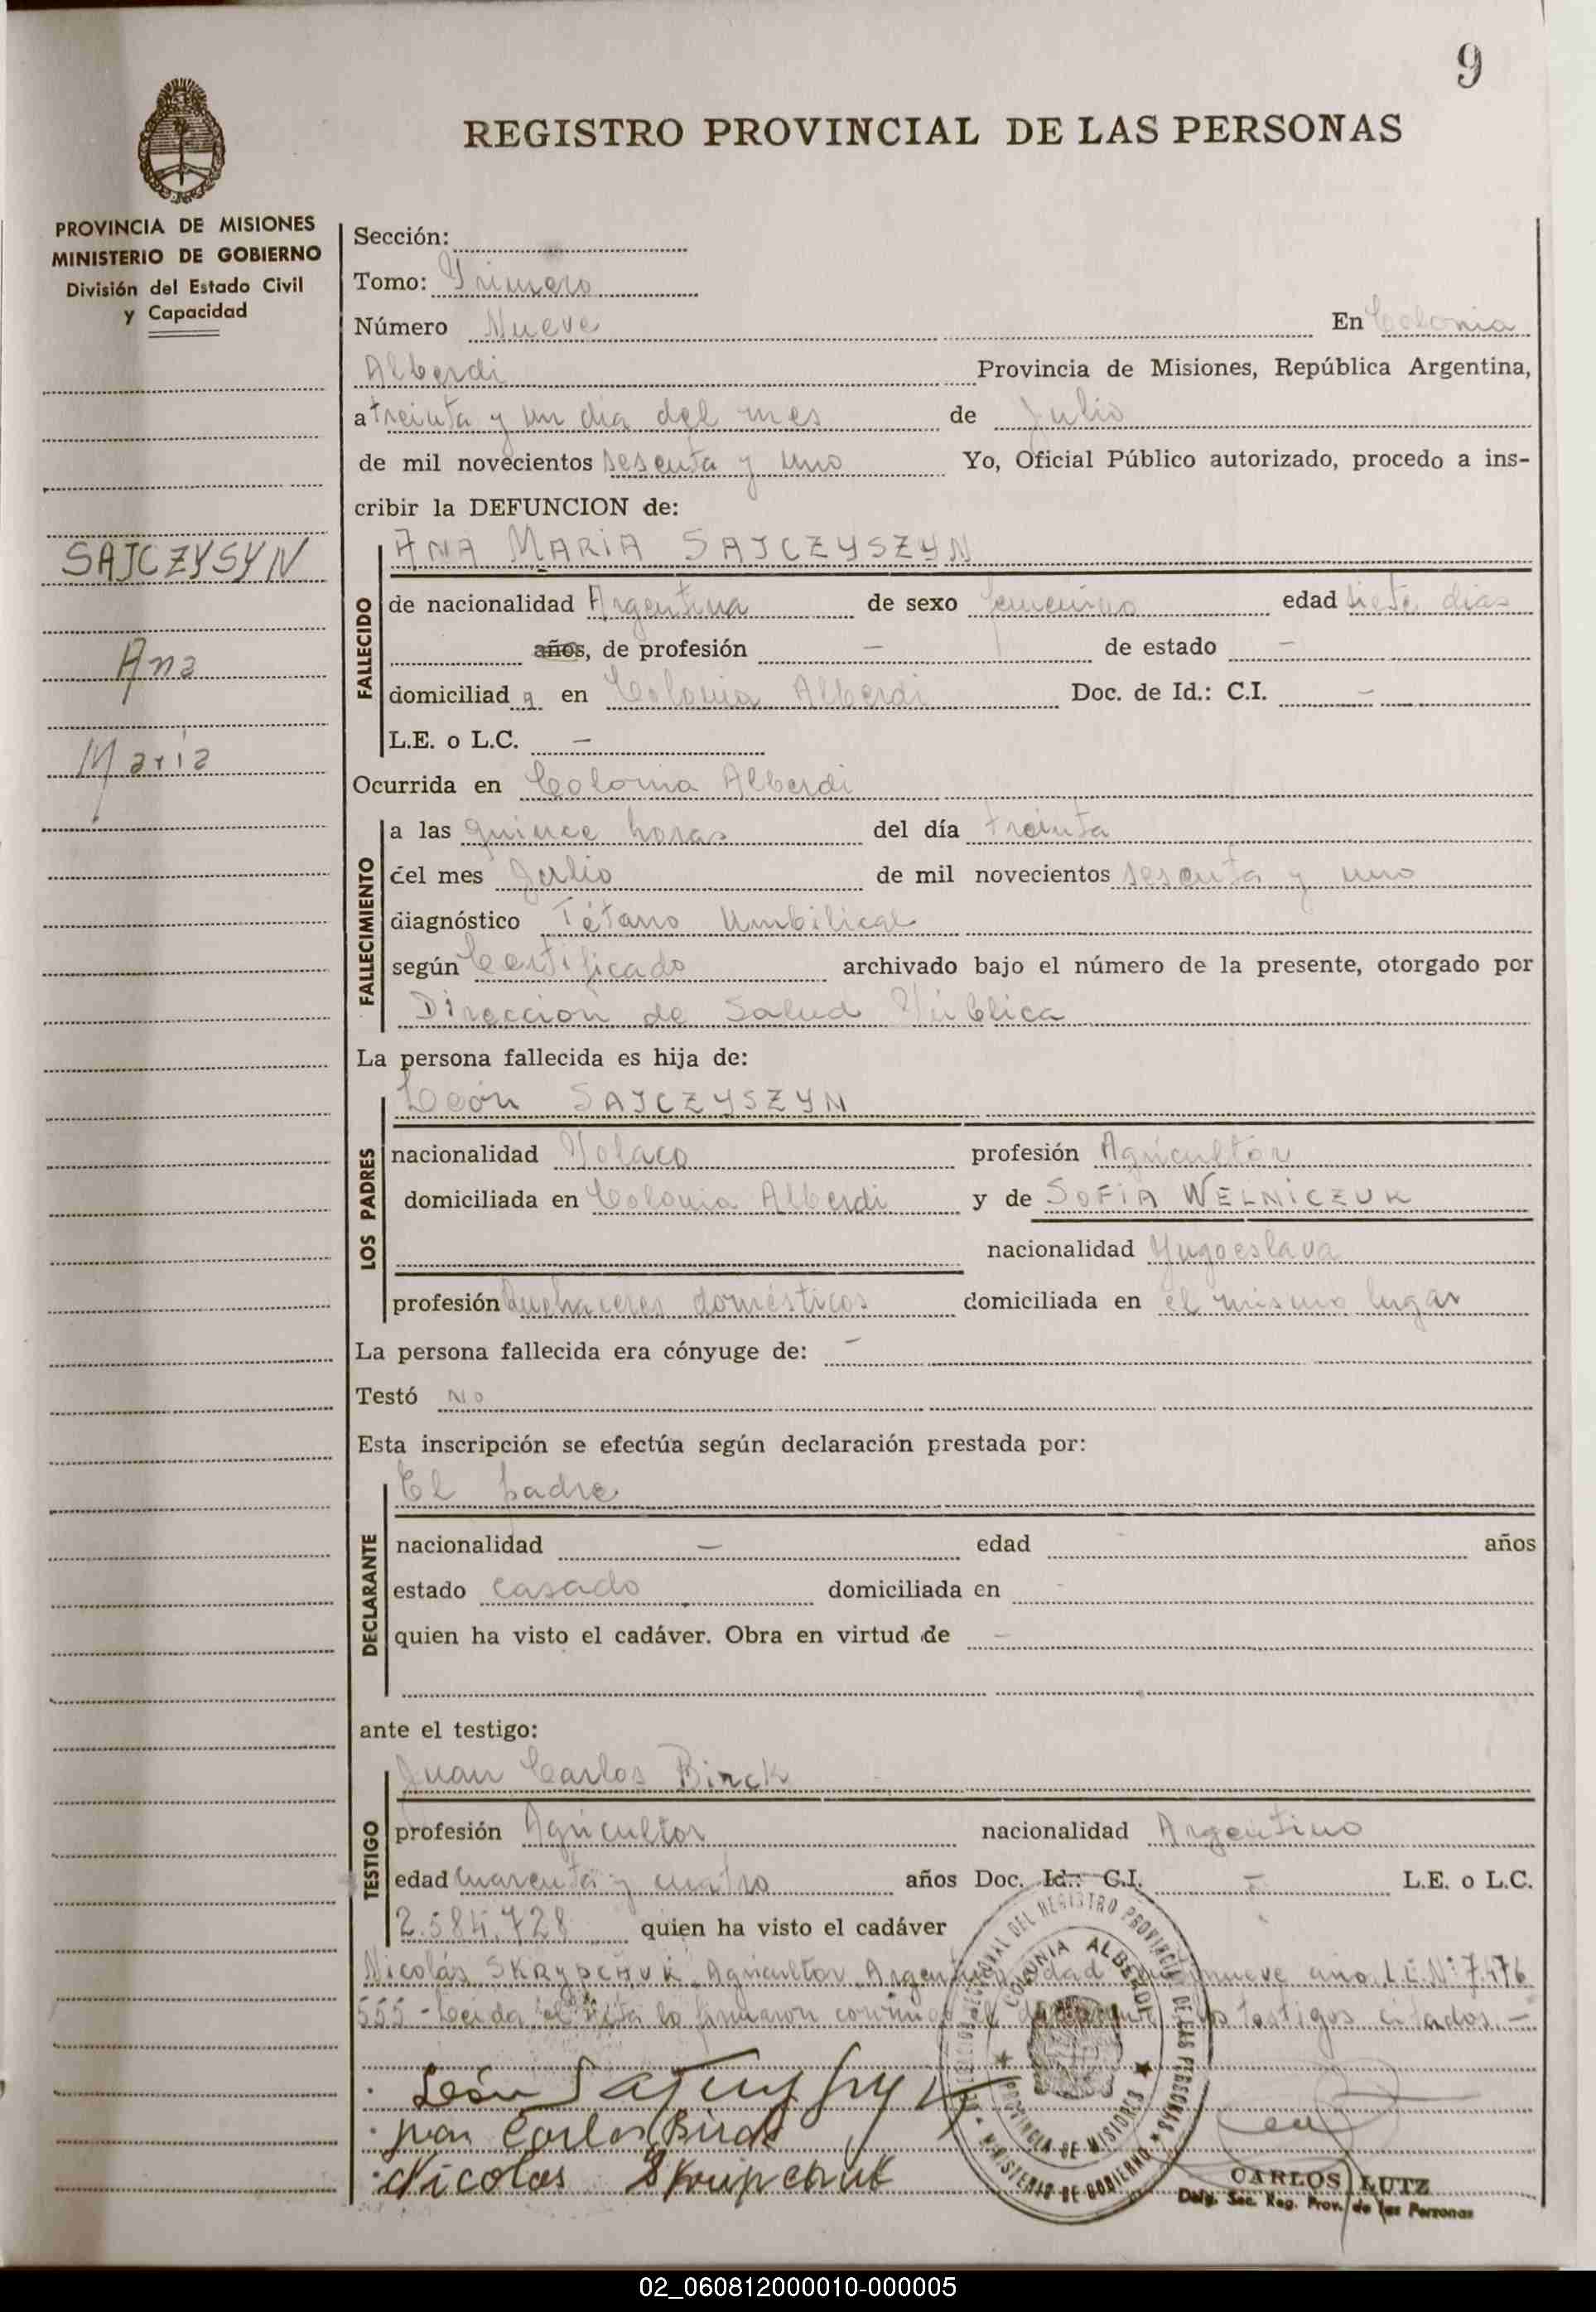 9
REGISTRO PROVINCIAL DE LAS PERSONAS
PROVINCIA DE MISIONES
MINISTERIO DE GOBIERNO
División del Estado Civil
y Capacidad
SAJCZYSYN
Ana
María
Sección:
Tomo: Primero
Número Nueve En Colonia
Alberdi Provincia de Misiones, República Argentina,
a treinta y un dia del mes de Julio
de mil novecientos sesenta y uno Yo, Oficial Público autorizado, procedo a ins-
cribir la DEFUNCION de:
FALLECIDO
ANA MARIA SAJCZYSZYN
de nacionalidad Argentina de sexo femenino edad siete dias
años, de profesión — de estado —
domiciliad a en Colonia Alberdi Doc. de Id.: C.I. —
L.E. o L.C. —
Ocurrida en Colonia Alberdi
FALLECIMIENTO
a las quince horas del día treinta
del mes Julio de mil novecientos sesenta y uno
diagnóstico Tétano Umbilical
según Certificado archivado bajo el número de la presente, otorgado por
Dirección de Salud Pública
La persona fallecida es hija de:
LOS PADRES
León SAJCZYSZYN
nacionalidad Polaco profesión Agricultor
domiciliada en Colonia Alberdi y de SOFIA WELNICZUK
nacionalidad Yugoeslava
profesión Quehaceres domésticos domiciliada en el mismo lugar
La persona fallecida era cónyuge de: —
Testó No
Esta inscripción se efectúa según declaración prestada por:
DECLARANTE
El padre
nacionalidad — edad años
estado casado domiciliada en
quien ha visto el cadáver. Obra en virtud de —
ante el testigo:
TESTIGO
Juan Carlos Birck
profesión Agricultor nacionalidad Argentino
edad Cuarenta y cuatro años Doc. Id.: C.I. — L.E. o L.C.
2.584.728 quien ha visto el cadáver
Nicolás SKRYPCHUK Agricultor Argentino edad nueve año L.E.Nº 7.476
555 - Leida el Acta lo firmaron conmigo el declarante testigos citados. —
León
Juan Carlos Birck
Nicolas Skrupchuk
DEL REGISTRO PROVINCIAL DE LAS PERSONAS
COLONIA ALBERDI
PROVINCIA DE MISIONES
MINISTERIO DE GOBIERNO
CARLOS LUTZ
Delg. Sec. Reg. Prov. de las Personas
02_060812000010-000005